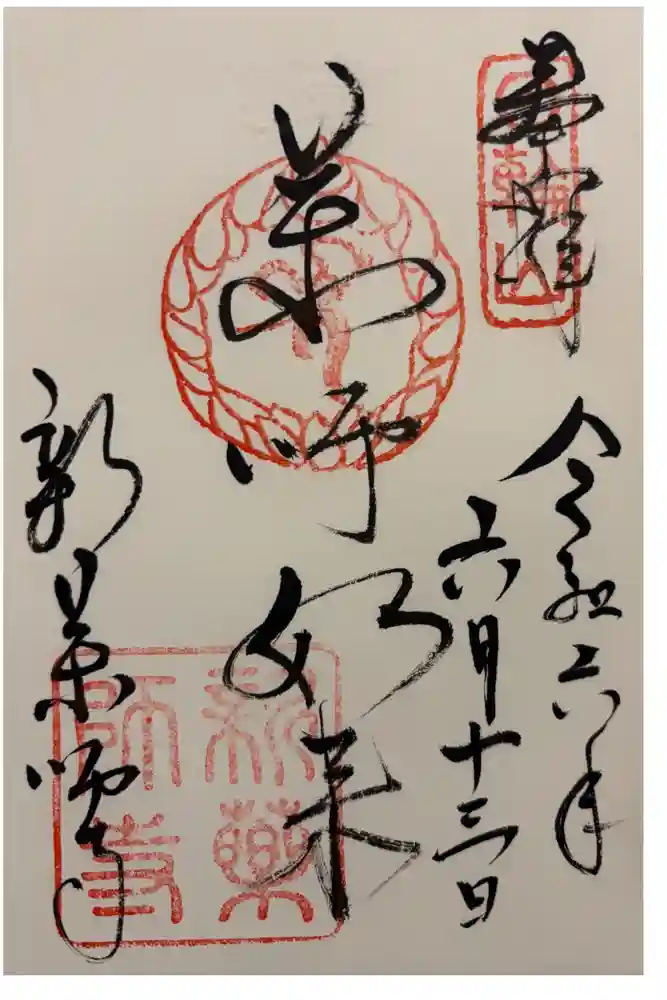 奉拝
令和六年
六月十三日
薬師如来
新薬師寺
新藥
師寺